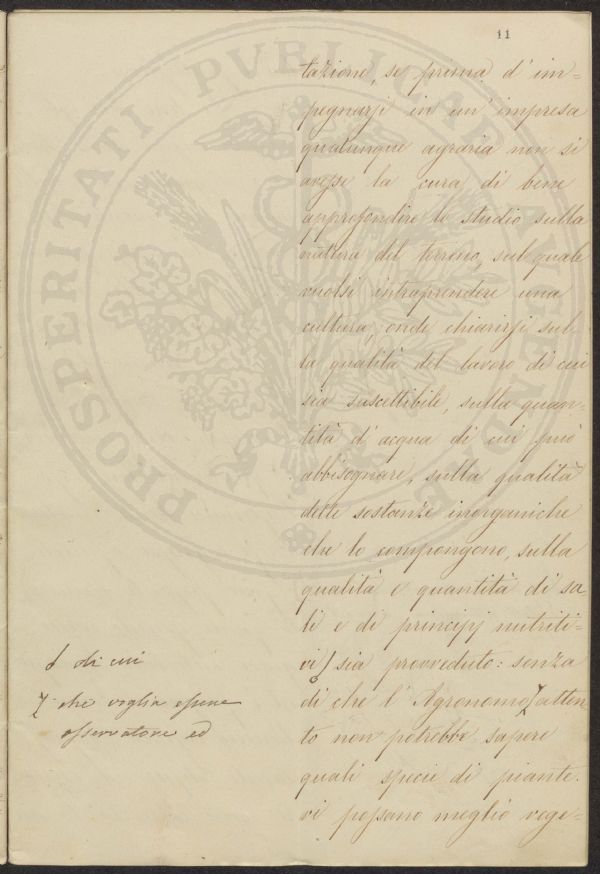 11
tazione, se prima d'im=
pegnarsi in un'impresa
qualunque agraria non si
avesse la cura di bene
approfondire lo studio sulla
natura del terreno, sul quale
vuolsi intraprendere una
cultura, onde chiarirsi sul=
la qualità del lavoro di cui
sia suscettibile, sulla quan=
tità d'acqua di cui può
abbisognare, sulla qualità
delle sostanze inorganiche
che lo compongono, sulla
qualità e quantità di sa
li e di principj nutriti=
vi sia provveduto: senza
di che l'Agronomo atten
to non potrebbe sapere
quali specie di piante
vi possano meglio vege=
di cui
che voglia essere
osservatore ed
PROSPERITATI PVBLICAE AVGENDAE